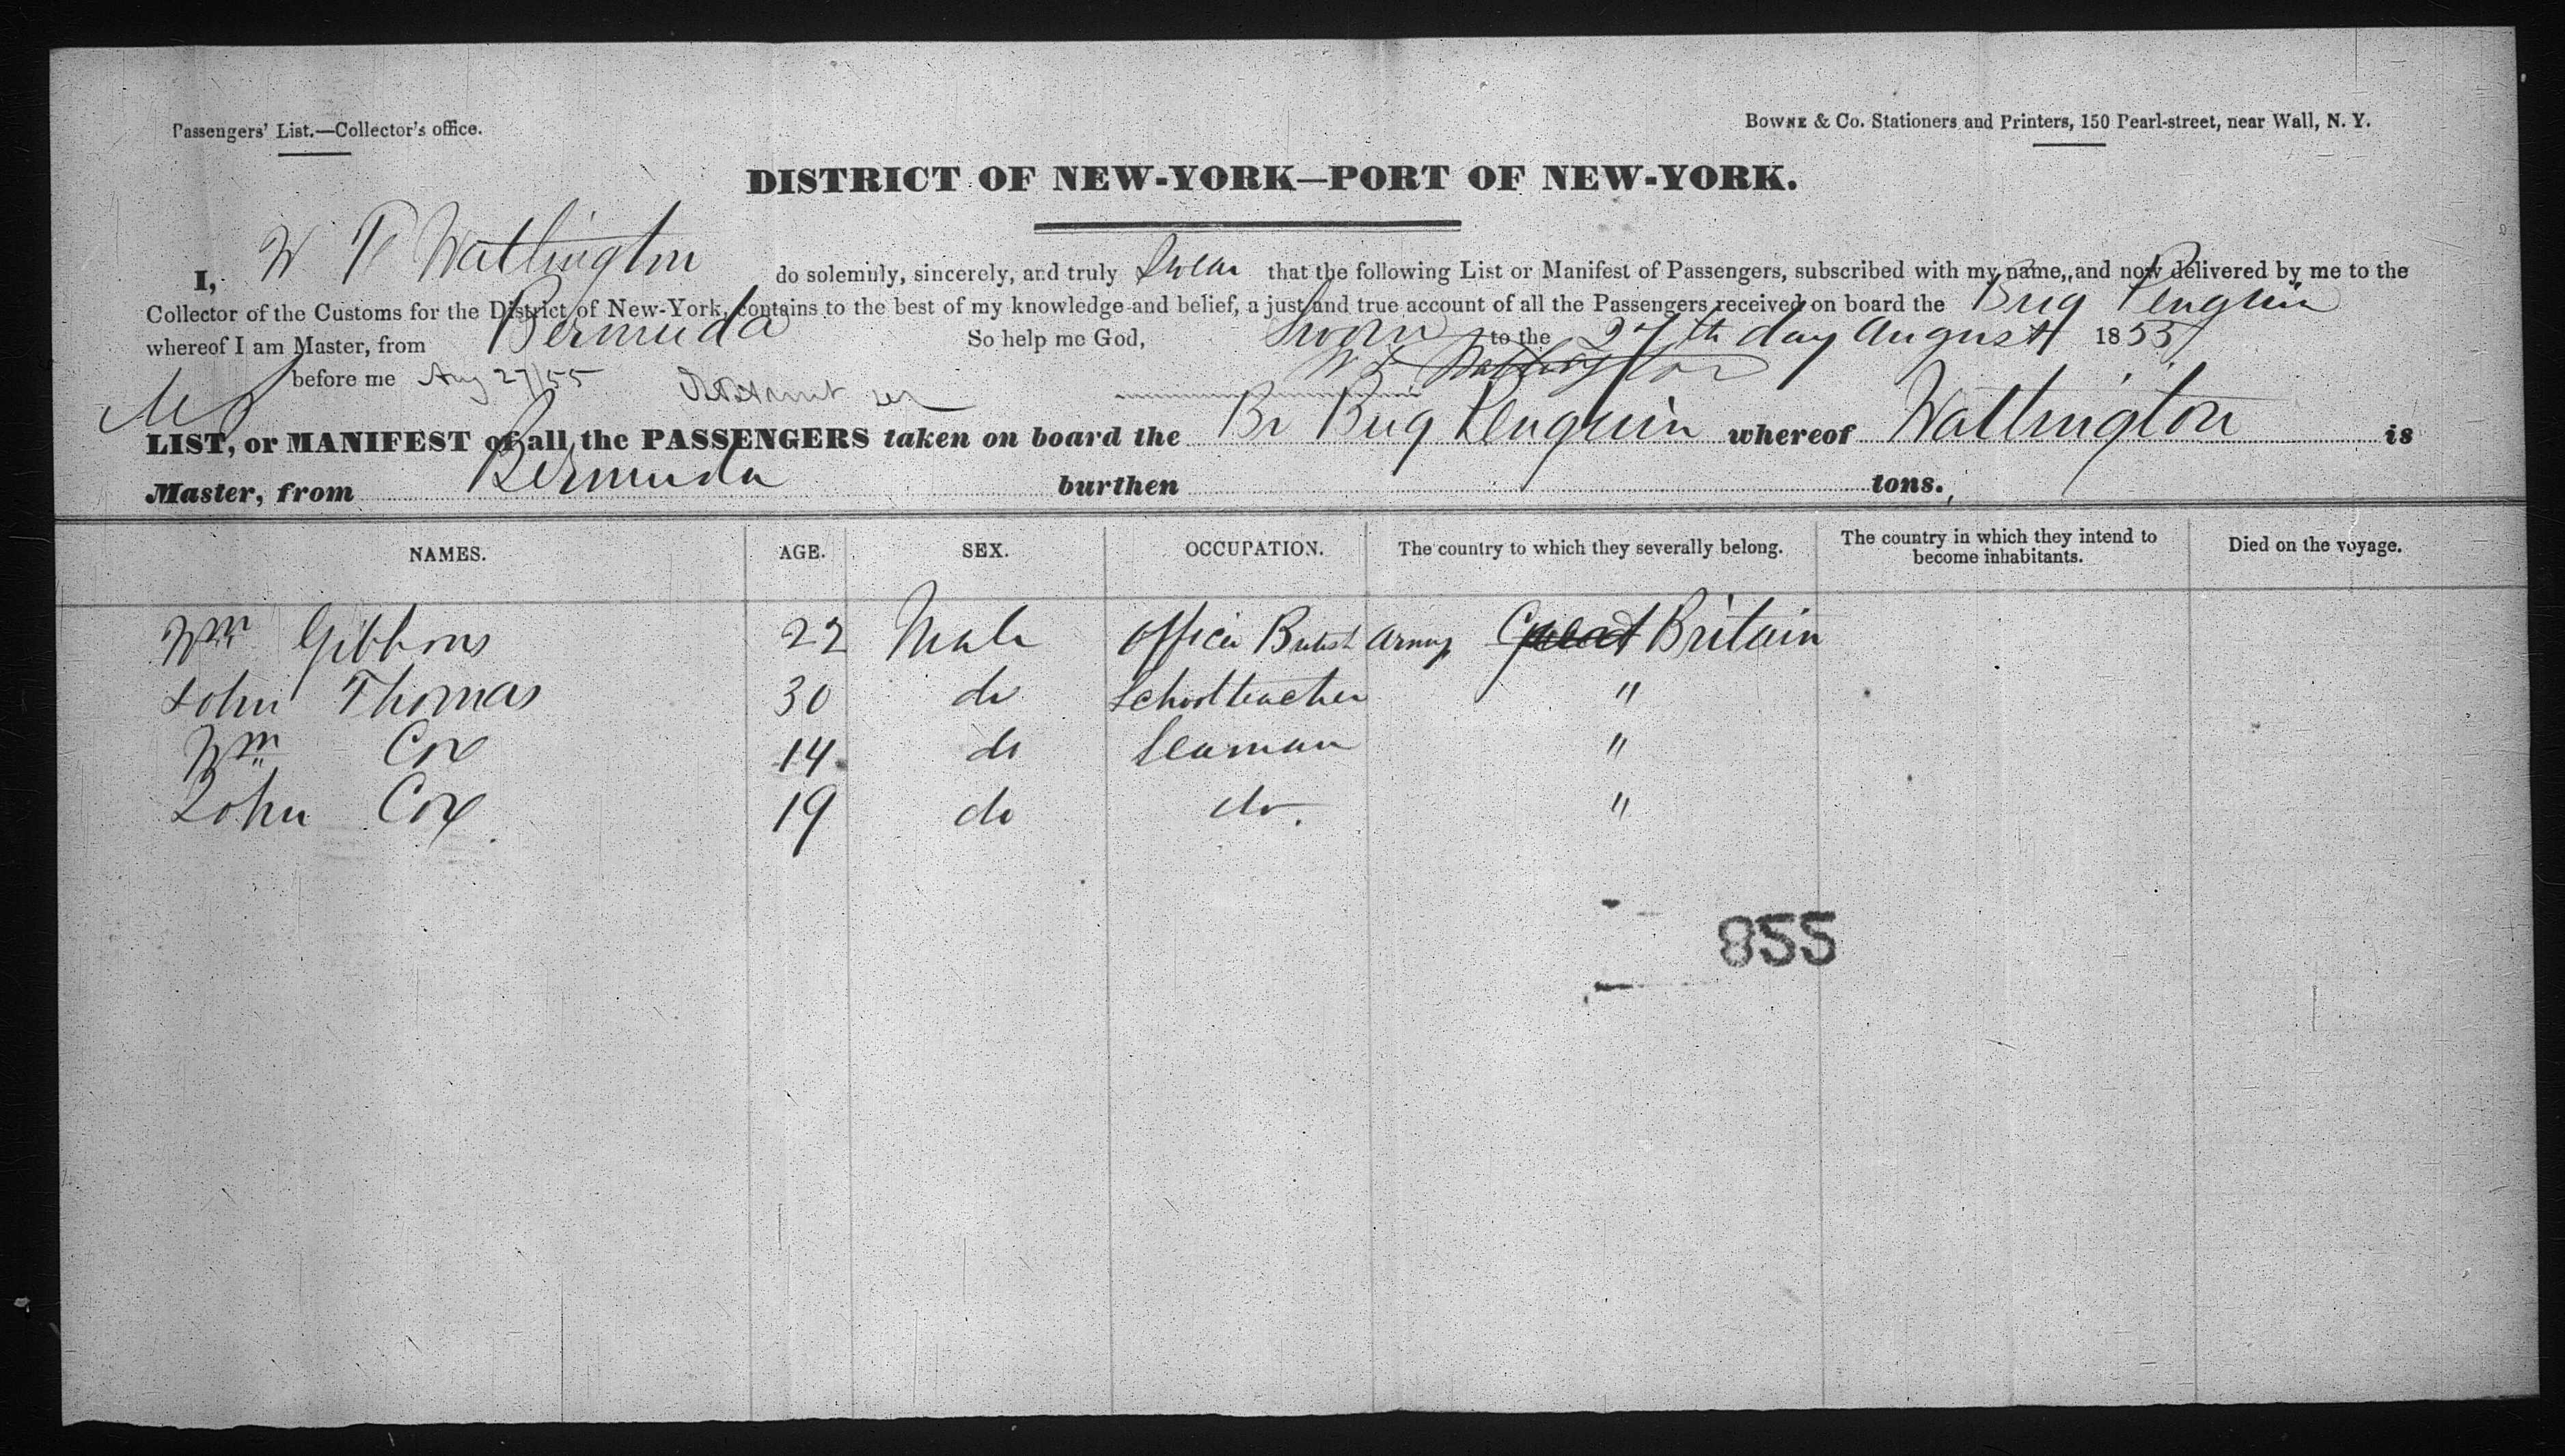 Passengers' List.—Collector's office.
Bowne & Co. Stationers and Printers, 150 Pearl-street, near Wall, N. Y.
DISTRICT OF NEW-YORK—PORT OF NEW-YORK.
I, W T Watlington do solemnly, sincerely, and truly Swear that the following List or Manifest of Passengers, subscribed with my name, and now delivered by me to the
Collector of the Customs for the District of New-York, contains to the best of my knowledge and belief, a just and true account of all the Passengers received on board the Brig Penguin
whereof I am Master, from Bermuda So help me God, Sworn to the 27th day August 1855
before me Aug 27/55 W T Watlington
LIST, or MANIFEST of all the PASSENGERS taken on board the Br Brig Penguin whereof Watlington is
Master, from Bermuda burthen tons.
NAMES. AGE. SEX. OCCUPATION. The country to which they severally belong. The country in which they intend to become inhabitants. Died on the voyage.
Wm Gibbons 22 Male Officer British Army Great Britain
John Thomas 30 do Schoolteacher "
Wm Cox 14 do Seaman "
John Cox 19 do do. "
855